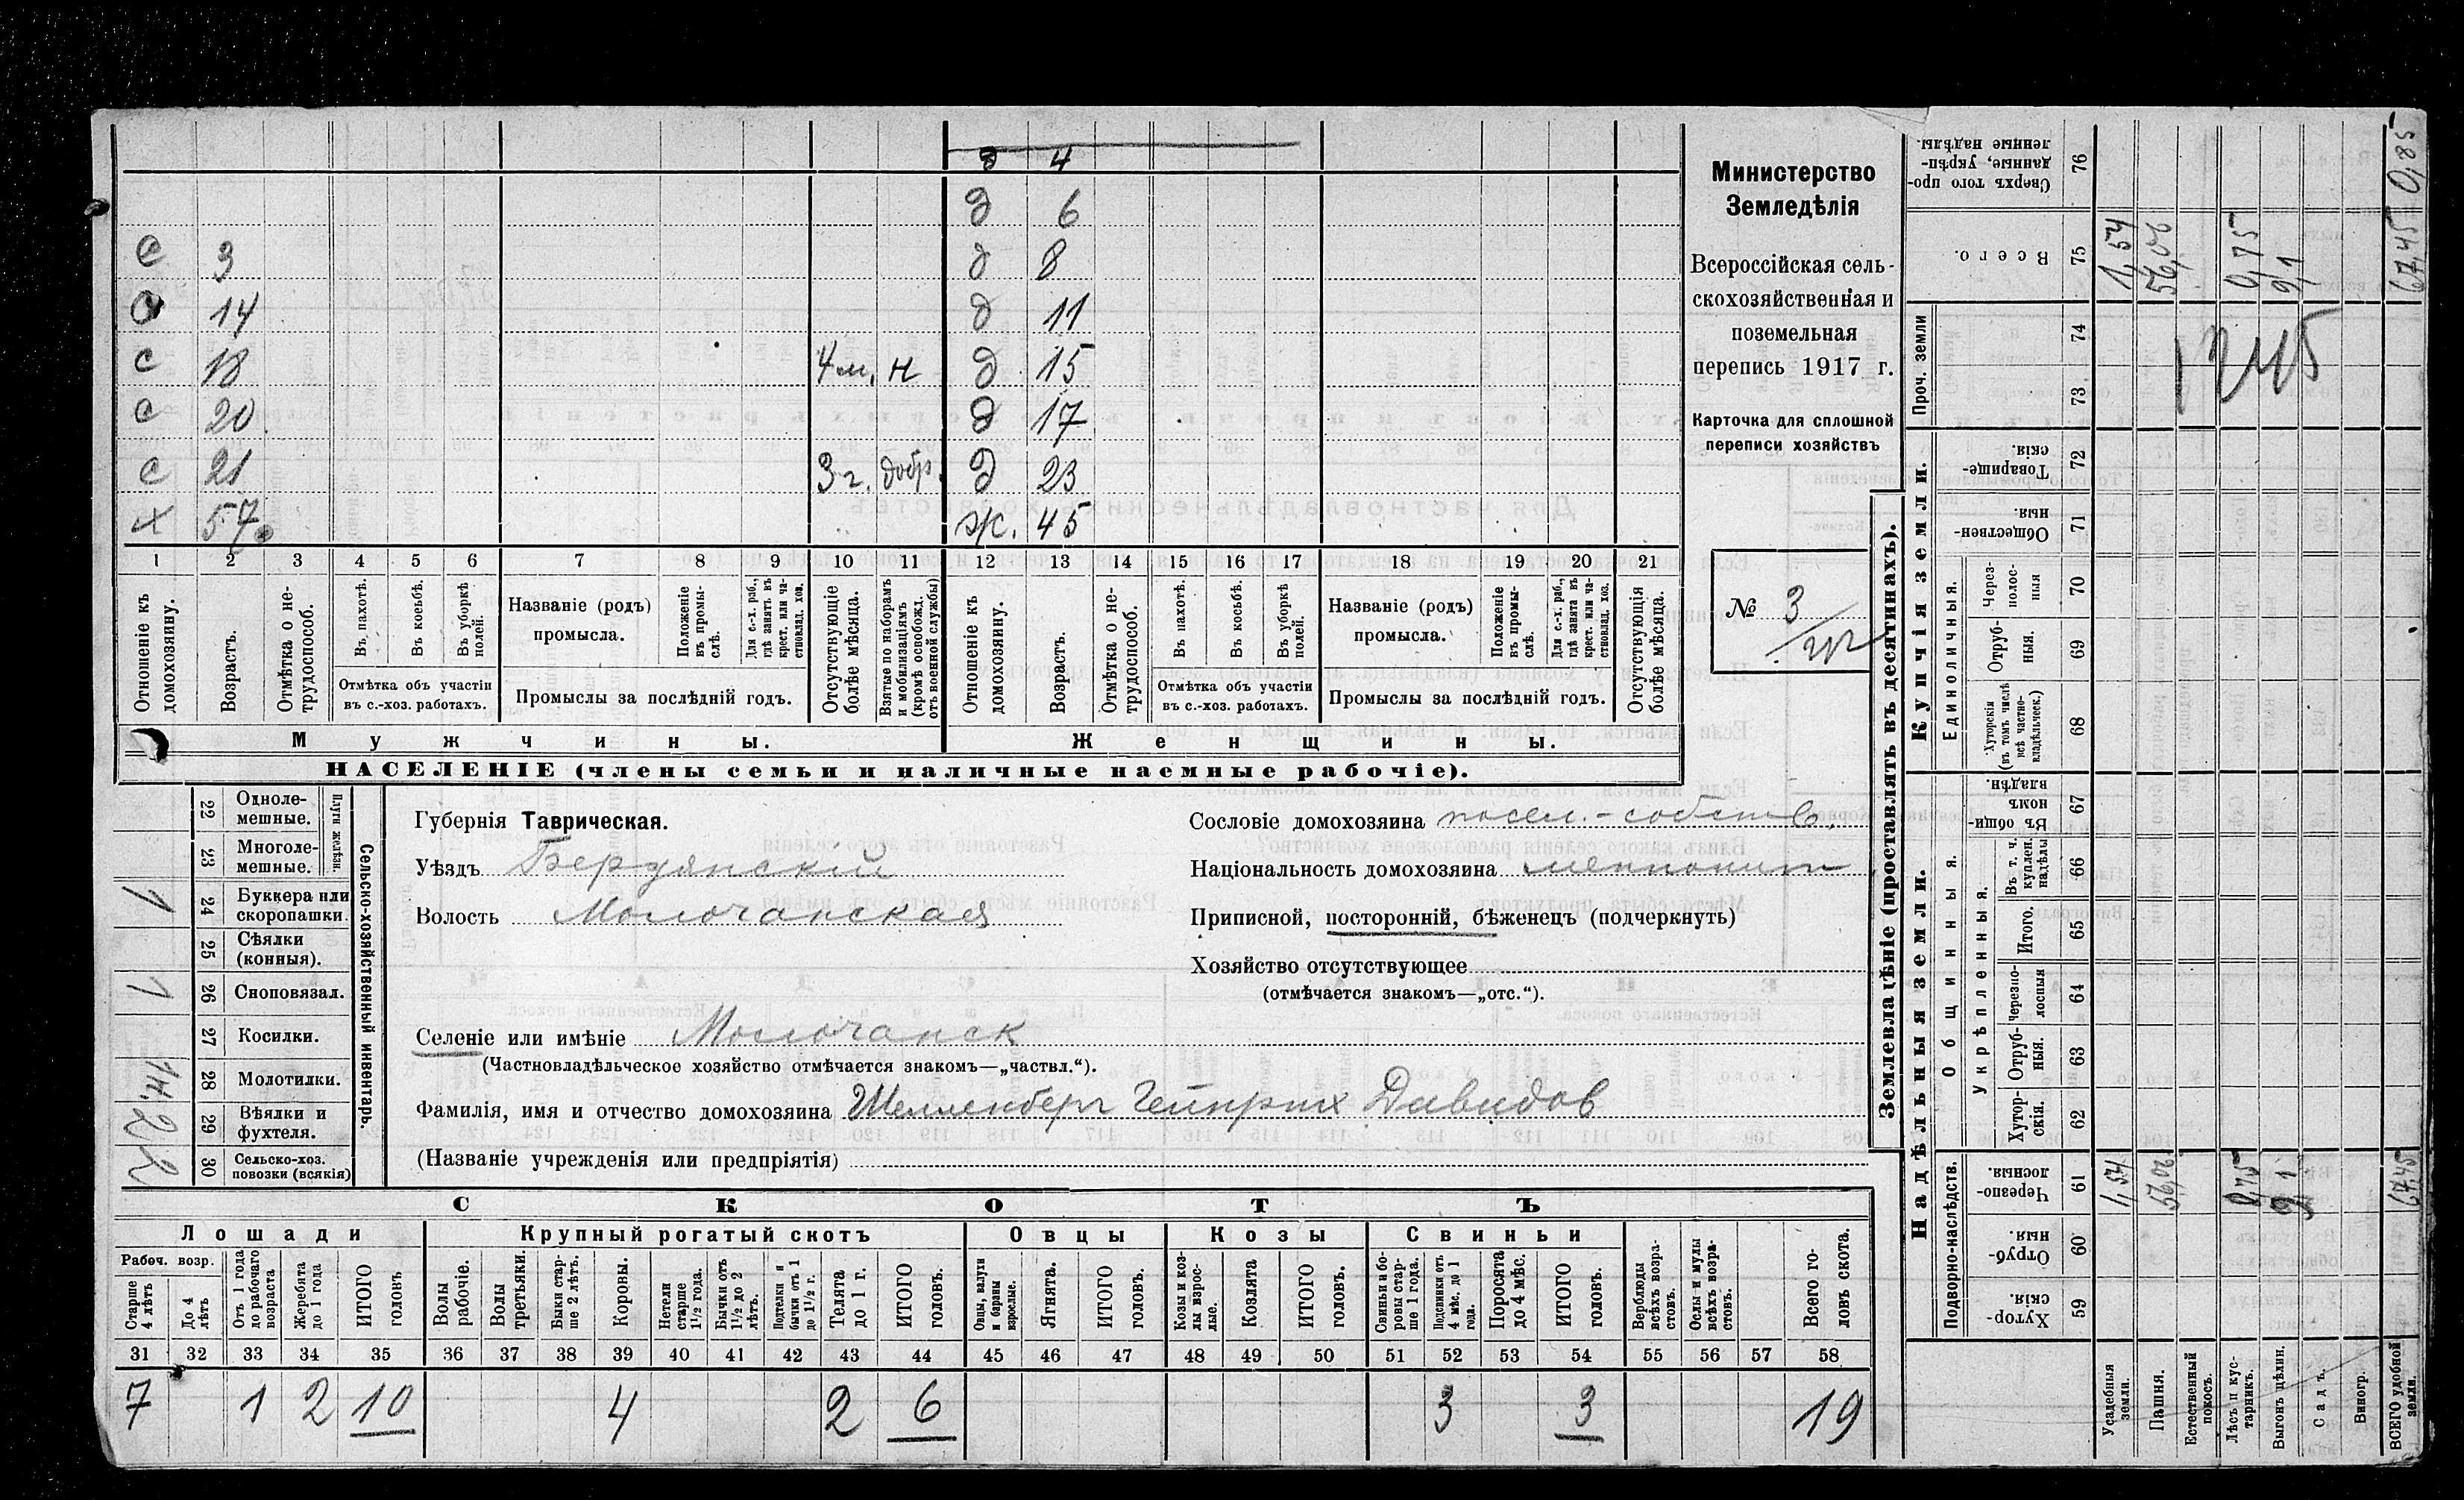 д 4
д 6
с 3 д 8
14 д 11
с 18 4 м. н д 15
с 20 д 17
с 21 3 г. добр. д 23
х 57 ж. 45
1 2 3 4 5 6 7 8 9 10 11 12 13 14 15 16 17 18 19 20 21
Отношеніе къ домохозяину.
Возрастъ.
Отмѣтка о нетрудоспособ.
Въ пахотѣ.
Въ косьбѣ.
Въ уборкѣ полей.
Отмѣтка объ участіи
въ с.-хоз. работахъ.
Названіе (родъ)
промысла.
Положеніе въ промыслѣ.
Для с.-х. раб., гдѣ занятъ въ крест. или частновлад. хоз.
Промыслы за послѣдній годъ.
Отсутствующіе болѣе мѣсяца.
Взятые по наборамъ и мобилизаціямъ (кромѣ освобожд. отъ военной службы)
Отношеніе къ домохозяину.
Возрастъ.
Отмѣтка о нетрудоспособ.
Въ пахотѣ.
Въ косьбѣ.
Въ уборкѣ полей.
Отмѣтка объ участіи
въ с.-хоз. работахъ.
Названіе (родъ)
промысла.
Положеніе въ промыслѣ.
Для с.-х. раб., гдѣ занята въ крест. или частновлад. хоз.
Промыслы за послѣдній годъ.
Отсутствующія болѣе мѣсяца.
Мужчины. Женщины.
НАСЕЛЕНІЕ (члены семьи и наличные наемные рабочіе).
Министерство
Земледѣлія
Всероссійская сель-
скохозяйственная и
поземельная
перепись 1917 г.
Карточка для сплошной
переписи хозяйствъ
№ 3
Сельско-хозяйственный инвентарь.
Плуги желѣзн.
22 Одноле-
мешные.
23 Многоле-
мешные.
1 24 Буккера или
скоропашки.
25 Сѣялки
(конныя).
1 26 Сноповязал.
27 Косилки.
28 Молотилки.
29 Вѣялки и
фухтеля.
2 30 Сельско-хоз.
повозки (всякія)
Губернія Таврическая.
Уѣздъ Бердянскій
Волость Молочанская
Сословіе домохозяина посел.-собств.
Національность домохозяина меннонит
Приписной, посторонній, бѣженецъ (подчеркнуть)
Хозяйство отсутствующее
(отмѣчается знакомъ—„отс.“).
Селеніе или имѣніе Молочанск
(Частновладѣльческое хозяйство отмѣчается знакомъ—„частвл.“).
Фамилія, имя и отчество домохозяина Шелленберг Гейнрих Давидов
(Названіе учрежденія или предпріятія)
СКОТЪ
Лошади Крупный рогатый скотъ Овцы Козы Свиньи
Рабоч. возр.
Старше 4 лѣтъ
До 4 лѣтъ
Отъ 1 года до рабочаго возраста
Жеребята до 1 года
ИТОГО головъ
Волы рабочіе.
Волы третьяки.
Быки старше 2 лѣтъ.
Коровы.
Нетели старше 1½ года.
Бычки отъ 1½ до 2 лѣтъ.
Подтелки и бычки отъ 1 до 1½ г.
Телята до 1 г.
ИТОГО головъ.
Овцы, валухи и бараны взрослые.
Ягнята.
ИТОГО головъ.
Козы и козлы взрослые.
Козлята
ИТОГО головъ.
Свиньи и боровы старше 1 года.
Подсвинки отъ 4 мѣс. до 1 года.
Поросята до 4 мѣс.
ИТОГО головъ.
Верблюды всѣхъ возрастовъ.
Ослы и мулы всѣхъ возрастовъ.
Всего головъ скота.
31 32 33 34 35 36 37 38 39 40 41 42 43 44 45 46 47 48 49 50 51 52 53 54 55 56 57 58
7 1 2 10 4 2 6 3 3 19
Землевладѣніе (проставлять въ десятинахъ).
Надѣльныя земли.
Купчія земли.
Проч. земли
Подворно-наслѣдств.
Общинныя.
Укрѣпленныя.
Единоличныя.
Сверхъ того проданные, укрѣпленные надѣлы. 76 0,85
Всего. 75 1,54 56,06 0,75 9,1 67,45
74
73
Товарищескія. 72
Общественныя. 71
Черезполосныя 70
Отрубныя. 69
Хуторскія (въ томъ числѣ всѣ частновладѣльческ.) 68
Въ общинномъ владѣн. 67
Въ т. ч. куплен. надѣлы 66
Итого. 65
Черезполосныя 64
Отрубныя. 63
Хуторскія. 62
Черезполосныя. 61 1,54 56,06 0,75 9,1 67,45
Отрубныя 60
Хуторскія 59
Усадебныя земли.
Пашня.
Естественный покосъ.
Лѣсъ и кустарникъ.
Выгонъ цѣлин.
Садъ.
Виногр.
ВСЕГО удобной земли.